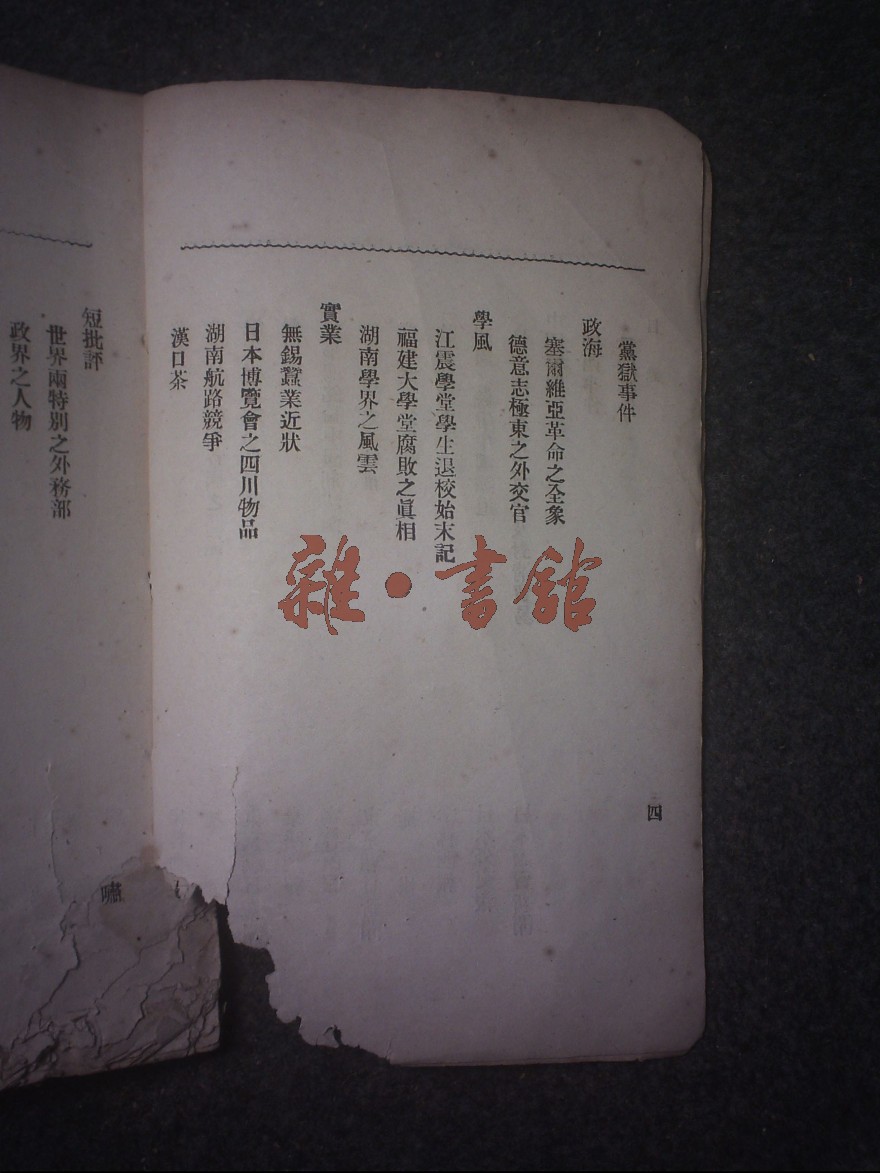 黨獄事件
政海
塞爾維亞革命之全象
德意志極東之外交官
學風
江震學堂學生退校始末記
福建大學堂腐敗之眞相
湖南學界之風雲
實業
無錫蠶業近狀
日本博覽會之四川物品
湖南航路競爭
漢口茶
四
短批評
世界兩特別之外務部
政界之人物
嘯
雜·書館